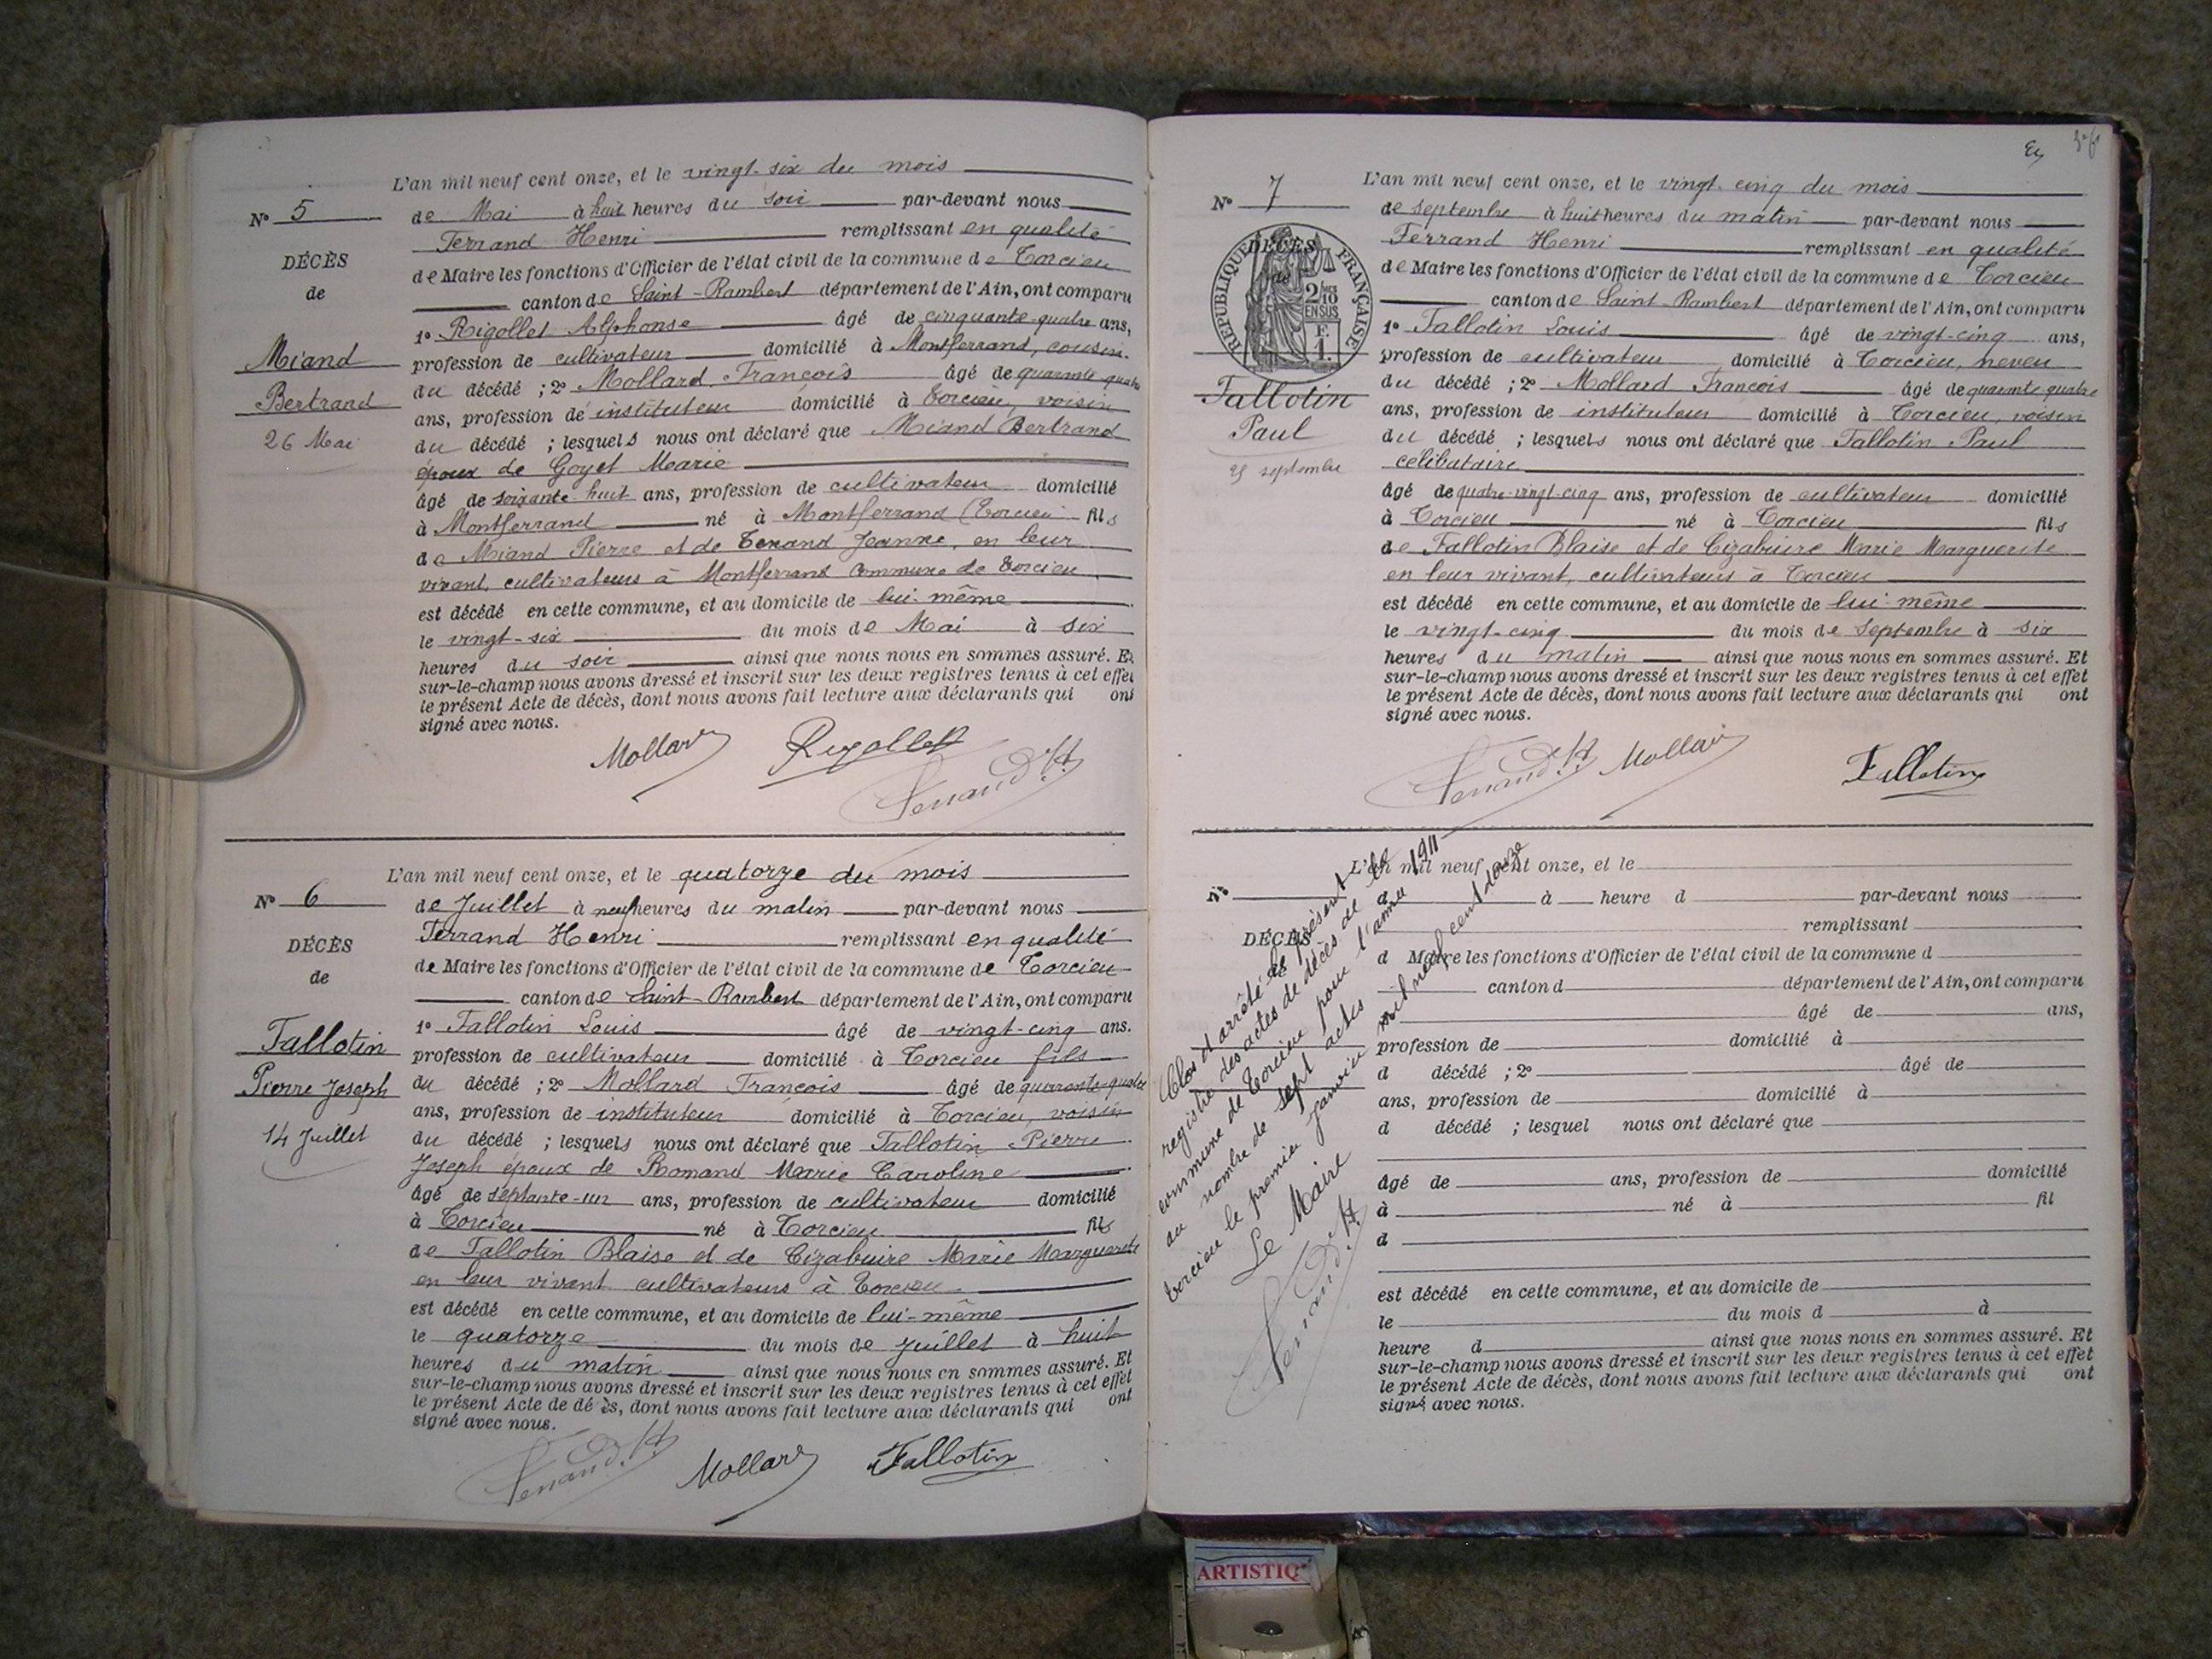 L'an mil neuf cent onze, et le vingt-six du mois
N° 5
de Mai à huit heures du soir par-devant nous
Ferrand Henri remplissant en qualité
DÉCÈS
de Maire les fonctions d'Officier de l'état civil de la commune de Torcieu
de
canton de Saint-Rambert département de l'Ain, ont comparu
1° Rigollet Alphonse âgé de cinquante-quatre ans,
Miand
profession de cultivateur domicilié à Montferrand, cousin
du décédé ; 2° Mollard François âgé de quarante quatre
Bertrand
ans, profession de instituteur domicilié à Torcieu, voisin
26 Mai
du décédé ; lesquels nous ont déclaré que Miand Bertrand
époux de Goyet Marie
âgé de soixante-huit ans, profession de cultivateur domicilié
à Montferrand né à Montferrand (Torcieu fils
de Miand Pierre et de Jeanne, en leur
vivant, cultivateurs à Montferrand Commune de Torcieu
est décédé en cette commune, et au domicile de lui-même
le vingt-six du mois de Mai à six
heures du soir ainsi que nous nous en sommes assuré. Et
sur-le-champ nous avons dressé et inscrit sur les deux registres tenus à cet effet
le présent Acte de décès, dont nous avons fait lecture aux déclarants qui ont
signé avec nous.
Mollard Rigollet
Ferrand. H.
L'an mil neuf cent onze, et le quatorze du mois
N° 6
de Juillet à neuf heures du matin par-devant nous
Ferrand Henri remplissant en qualité
DÉCÈS
de Maire les fonctions d'Officier de l'état civil de la commune de Torcieu
de
canton de Saint-Rambert département de l'Ain, ont comparu
1° Fallotin Louis âgé de vingt-cinq ans.
Fallotin
profession de cultivateur domicilié à Torcieu fils
Pierre Joseph
du décédé ; 2° Mollard François âgé de quarante-quatre
ans, profession de instituteur domicilié à Torcieu, voisin
14 Juillet
du décédé ; lesquels nous ont déclaré que Fallotin Pierre
Joseph époux de Romand Marie Caroline
âgé de septante-un ans, profession de cultivateur domicilié
à Torcieu né à Torcieu fils
de Fallotin Blaise et de Cizabuire Marie Marguerite
en leur vivant cultivateurs à Torcieu
est décédé en cette commune, et au domicile de lui-même
le quatorze du mois de Juillet à huit
heures du matin ainsi que nous nous en sommes assuré. Et
sur-le-champ nous avons dressé et inscrit sur les deux registres tenus à cet effet
le présent Acte de dé ès, dont nous avons fait lecture aux déclarants qui ont
signé avec nous.
Ferrand. H. Mollard Fallotin
L'an mil neuf cent onze, et le vingt-cinq du mois
N° 7
de Septembre à huit heures du matin par-devant nous
Ferrand Henri remplissant en qualité
DÉCÈS
de
RÉPUBLIQUE FRANÇAISE
2/10 EN SUS
F. 1.
de Maire les fonctions d'Officier de l'état civil de la commune de Torcieu
canton de Saint-Rambert département de l'Ain, ont comparu
1° Fallotin Louis âgé de vingt-cinq ans,
profession de cultivateur domicilié à Torcieu, neveu
Fallotin
du décédé ; 2° Mollard François âgé de quarante quatre
ans, profession de instituteur domicilié à Torcieu, voisin
Paul
du décédé ; lesquels nous ont déclaré que Fallotin Paul
25 septembre
célibataire
âgé de quatre-vingt-cinq ans, profession de cultivateur domicilié
à Torcieu né à Torcieu fils
de Fallotin Blaise et de Cizabuire Marie Marguerite
en leur vivant, cultivateurs à Torcieu
est décédé en cette commune, et au domicile de lui-même
le vingt-cinq du mois de Septembre à six
heures du matin ainsi que nous nous en sommes assuré. Et
sur-le-champ nous avons dressé et inscrit sur les deux registres tenus à cet effet
le présent Acte de décès, dont nous avons fait lecture aux déclarants qui ont
signé avec nous.
Ferrand. H. Mollard Fallotin
L'an mil neuf cent onze, et le
N°
d à heure d par-devant nous
remplissant
DÉCÈS
de
d Maire les fonctions d'Officier de l'état civil de la commune d
canton d département de l'Ain, ont comparu
1° âgé de ans,
profession de domicilié à
d décédé ; 2° âgé de
ans, profession de domicilié à
d décédé ; lesquel nous ont déclaré que
âgé de ans, profession de domicilié
à né à fil
d
est décédé en cette commune, et au domicile de
le du mois d à
heure d ainsi que nous nous en sommes assuré. Et
sur-le-champ nous avons dressé et inscrit sur les deux registres tenus à cet effet
le présent Acte de décès, dont nous avons fait lecture aux déclarants qui ont
signé avec nous.
Clos et arrêté le présent
registre des actes de décès de la
commune de Torcieu pour l'année 1911
au nombre de sept actes
Torcieu le premier Janvier mil neuf cent douze
Le Maire
Ferrand. H.
ARTISTIQ